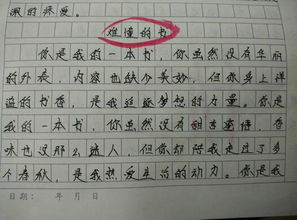 満的疼爱。
难懂的书
你是我的一本书，你虽然没有华丽
的外表，内容也缺个美妙，但你身上洋
溢的书香，是我延续梦想的力量。你是
我的一本书，你虽然没有甜言蜜语，香
味也没那么迷人，但你却陪我走过了多
个春秋，是我热爱生活的动力。你是我
日期： 年 月 日